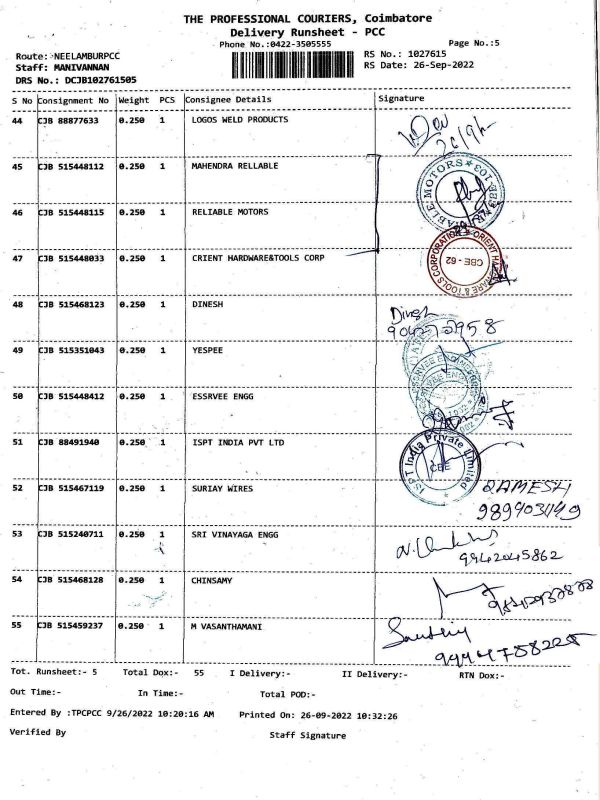 THE PROFESSIONAL COURIERS, Coimbatore
Delivery Runsheet - PCC
Phone No.:0422-3505555 Page No.:5
Route: NEELAMBURPCC RS No.: 1027615
Staff: MANIVANNAN RS Date: 26-Sep-2022
DRS No.: DCJB102761505
S No Consignment No Weight PCS Consignee Details Signature
44 CJB 88877633 0.250 1 LOGOS WELD PRODUCTS
45 CJB 515448112 0.250 1 MAHENDRA RELLABLE
46 CJB 515448115 0.250 1 RELIABLE MOTORS
47 CJB 515448033 0.250 1 CRIENT HARDWARE&TOOLS CORP
CBE - 62
48 CJB 515468123 0.250 1 DINESH Dinesh
49 CJB 515351043 0.250 1 YESPEE
50 CJB 515448412 0.250 1 ESSRVEE ENGG
51 CJB 88491940 0.250 1 ISPT INDIA PVT LTD
ISPT India Private Limited
CBE
52 CJB 515467119 0.250 1 SURIAY WIRES RAMESH
53 CJB 515240711 0.250 1 SRI VINAYAGA ENGG
9942045862
54 CJB 515468128 0.250 1 CHINSAMY
55 CJB 515459237 0.250 1 M VASANTHAMANI
Tot. Runsheet:- 5 Total Dox:- 55 I Delivery:- II Delivery:- RTN Dox:-
Out Time:- In Time:- Total POD:-
Entered By :TPCPCC 9/26/2022 10:20:16 AM Printed On: 26-09-2022 10:32:26
Verified By Staff Signature